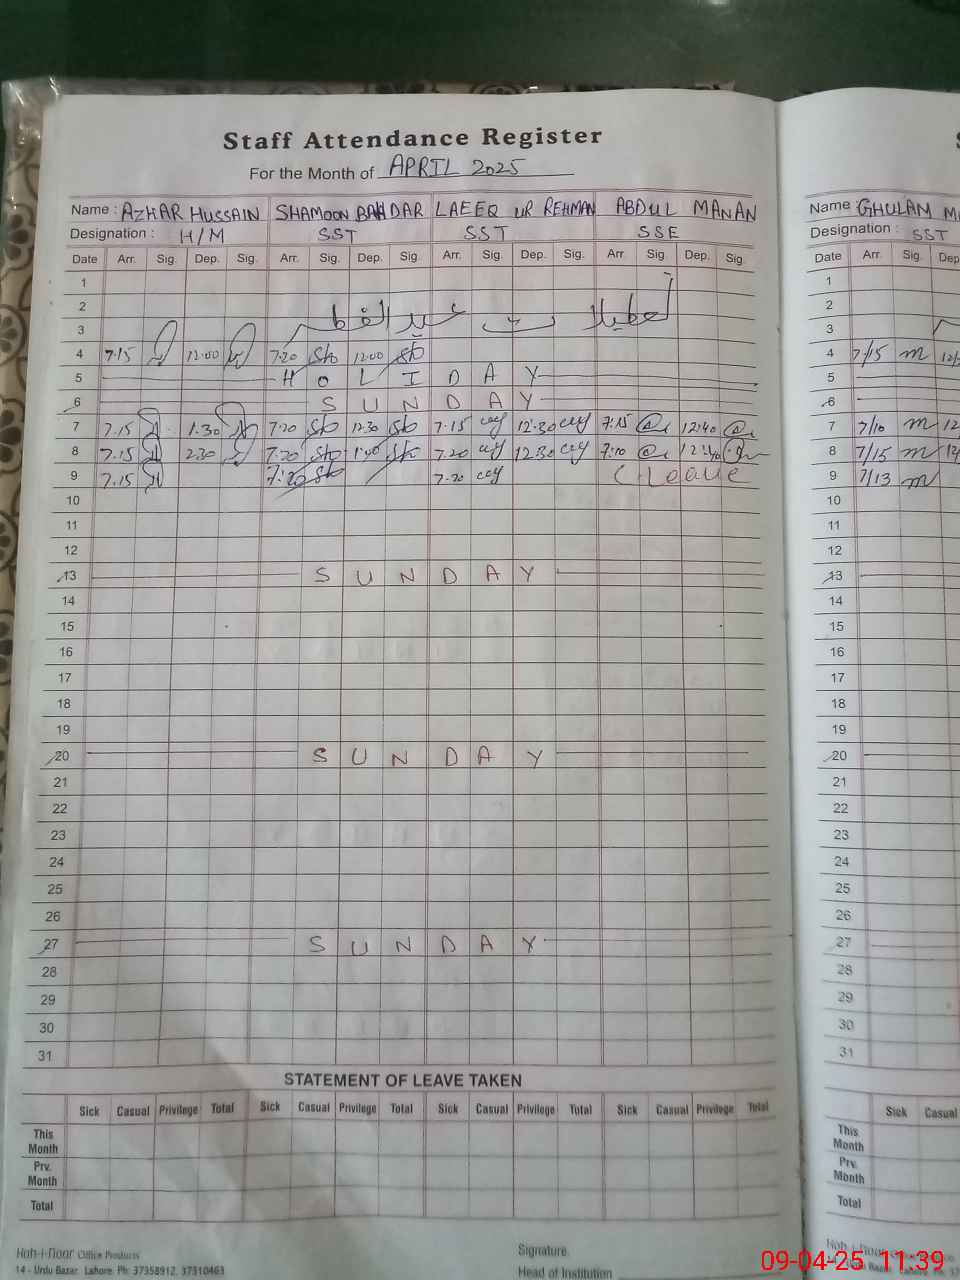 Staff Attendance Register
For the Month of APRIL 2025
Name : AZHAR HUSSAIN SHAMOON BAHADAR LAEEQ UR REHMAN ABDUL MANAN
Designation : H/M SST SST SSE
Date Arr. Sig. Dep. Sig. Arr. Sig. Dep. Sig. Arr. Sig. Dep. Sig. Arr. Sig. Dep. Sig.
1
2
3 تعطیلات عید الفطر
4 7.15 12.00 7.20 12.00
5 HOLIDAY
6 SUNDAY
7 7.15 1.30 7.20 12.30 7.15 12.30 7:15 12:40
8 7.15 2.30 7.20 1.40 7.20 12.30 7:10 12:40
9 7.15 7:20 7.20 C Leave
10
11
12
13 SUNDAY
14
15
16
17
18
19
20 SUNDAY
21
22
23
24
25
26
27 SUNDAY
28
29
30
31
STATEMENT OF LEAVE TAKEN
Sick Casual Privilege Total Sick Casual Privilege Total Sick Casual Privilege Total Sick Casual Privilege Total
This Month
Prv. Month
Total
Koh-i-Noor Office Products
14 - Urdu Bazar, Lahore. Ph: 37358912, 37310463
Signature.
Head of Institution
Name GHULAM
Designation : SST
Date Arr. Sig. Dep
1
2
3
4 7/15
5
6
7 7/10
8 7/15
9 7/13
10
11
12
13
14
15
16
17
18
19
20
21
22
23
24
25
26
27
28
29
30
31
Sick Casual
This Month
Prv. Month
Total
09-04-25 11:39